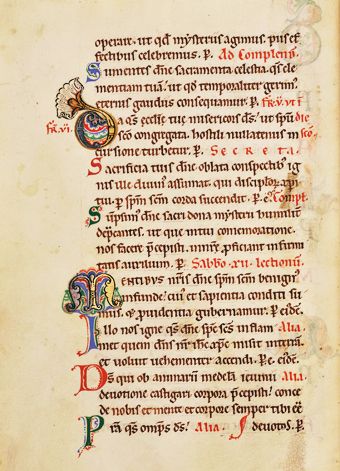 operate. ut qđ mysterus agimus. piis ef
fectibus celebremus. P. Ad Complend.
Sumentes dne sacramenta celestia. qs cle
mentiam tuā. ut qđ temporaliter gerim.
eternis gaudiis consequamur. P. fr. vi
fr. vi. Da qs ecclie tue misericors ds. ut spu
sco congregata. hostili nullatenus in
cursione turbetur. P. Secreta.
Sacrificia tuis dne oblata conspectib; ig
nis ille divin assumat. qui discipulor
p spm scm corda succendit. P. Compl.
Sumpsim dne sacri dona mysterii humilit
depcantes. ut que intui commemoratione.
nos facere pcepisti. in nre pficiant infirmi
tatis auxilium. P. Sabbo .xii. lectionum
Mentibus nris dne spm scm benign
infunde. cui et sapientia conditi su
mus. et prudentia gubernamur. P.
Illo nos igne qs dne sps scs inflam Alia.
met quem dns nr ihc xpc misit in terrā.
et voluit vehementer accendi. P. e. eide.
Ds qui ob animarū medelā ieiunii Alia.
devotione castigari corpora pcepisti. conce
de nobis et mente et corpore semper tibi eē
Prā qs omps ds. Alia. devotos. P.